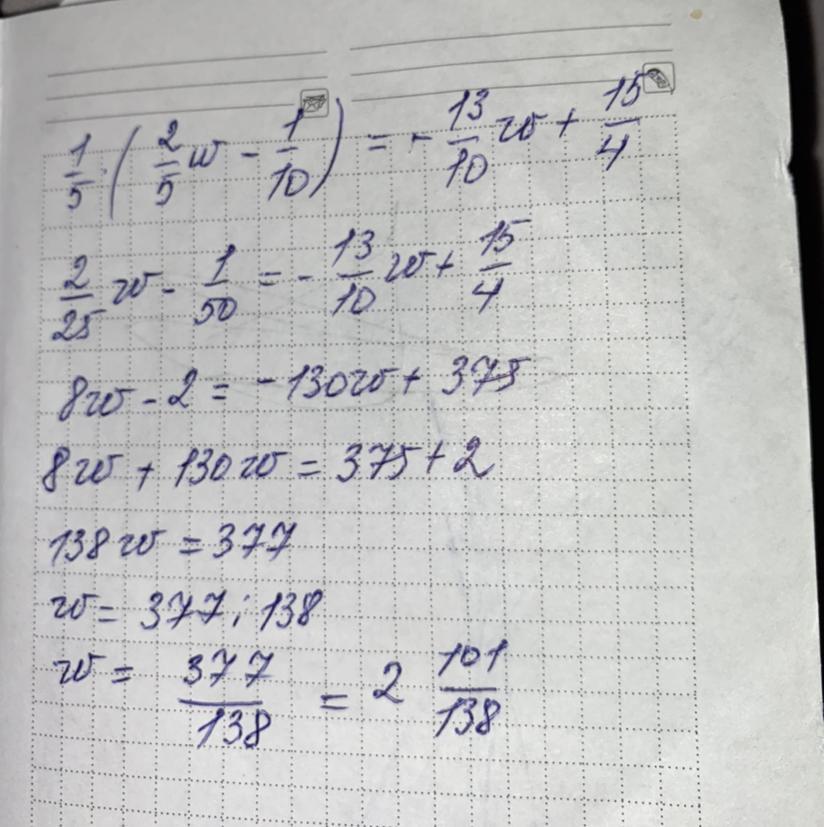 1/5 · (2/5 w - 1/10) = - 13/10 w + 15/4
2/25 w - 1/50 = - 13/10 w + 15/4
8w - 2 = -130w + 375
8w + 130w = 375 + 2
138w = 377
w = 377 : 138
w = 377/138 = 2 101/138